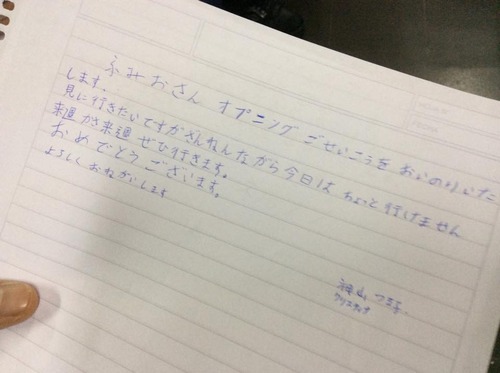 ふみおさん オプニング ごせいこうを おいのりいた
します。
見に行きたいですがざんねんながら今日は ちょっと行けません
来週 かさ来週 ぜひ行きます。
おめでとう ございます。
よろしく おねがいします
クリスティナ